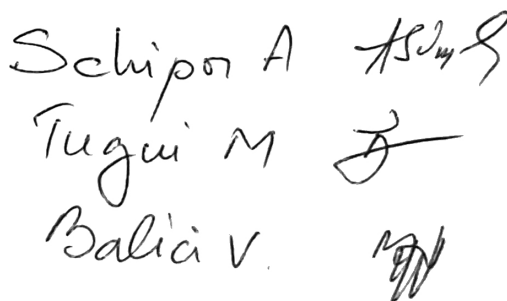 Schipor A
Tugui M
Balici V.